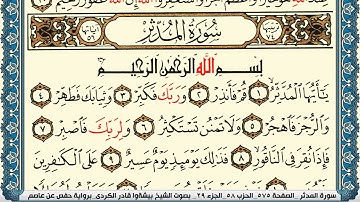 سُورَةُ المُدَّثِّر
بِسْمِ اللَّهِ الرَّحْمَٰنِ الرَّحِيمِ
يَا أَيُّهَا الْمُدَّثِّرُ ١ قُمْ فَأَنذِرْ ٢ وَرَبَّكَ فَكَبِّرْ ٣ وَثِيَابَكَ فَطَهِّرْ ٤
وَالرُّجْزَ فَاهْجُرْ ٥ وَلَا تَمْنُن تَسْتَكْثِرُ ٦ وَلِرَبِّكَ فَاصْبِرْ ٧
فَإِذَا نُقِرَ فِي النَّاقُورِ ٨ فَذَٰلِكَ يَوْمَئِذٍ يَوْمٌ عَسِيرٌ ٩ عَلَى الْكَافِرِينَ
سورة المدثر _ الصفحة ٥٧٥_ الحزب ٥٨_ الجزء ٢٩_ بصوت الشيخ بيشةوا قادر الكردي_ برواية حفص عن عاصم